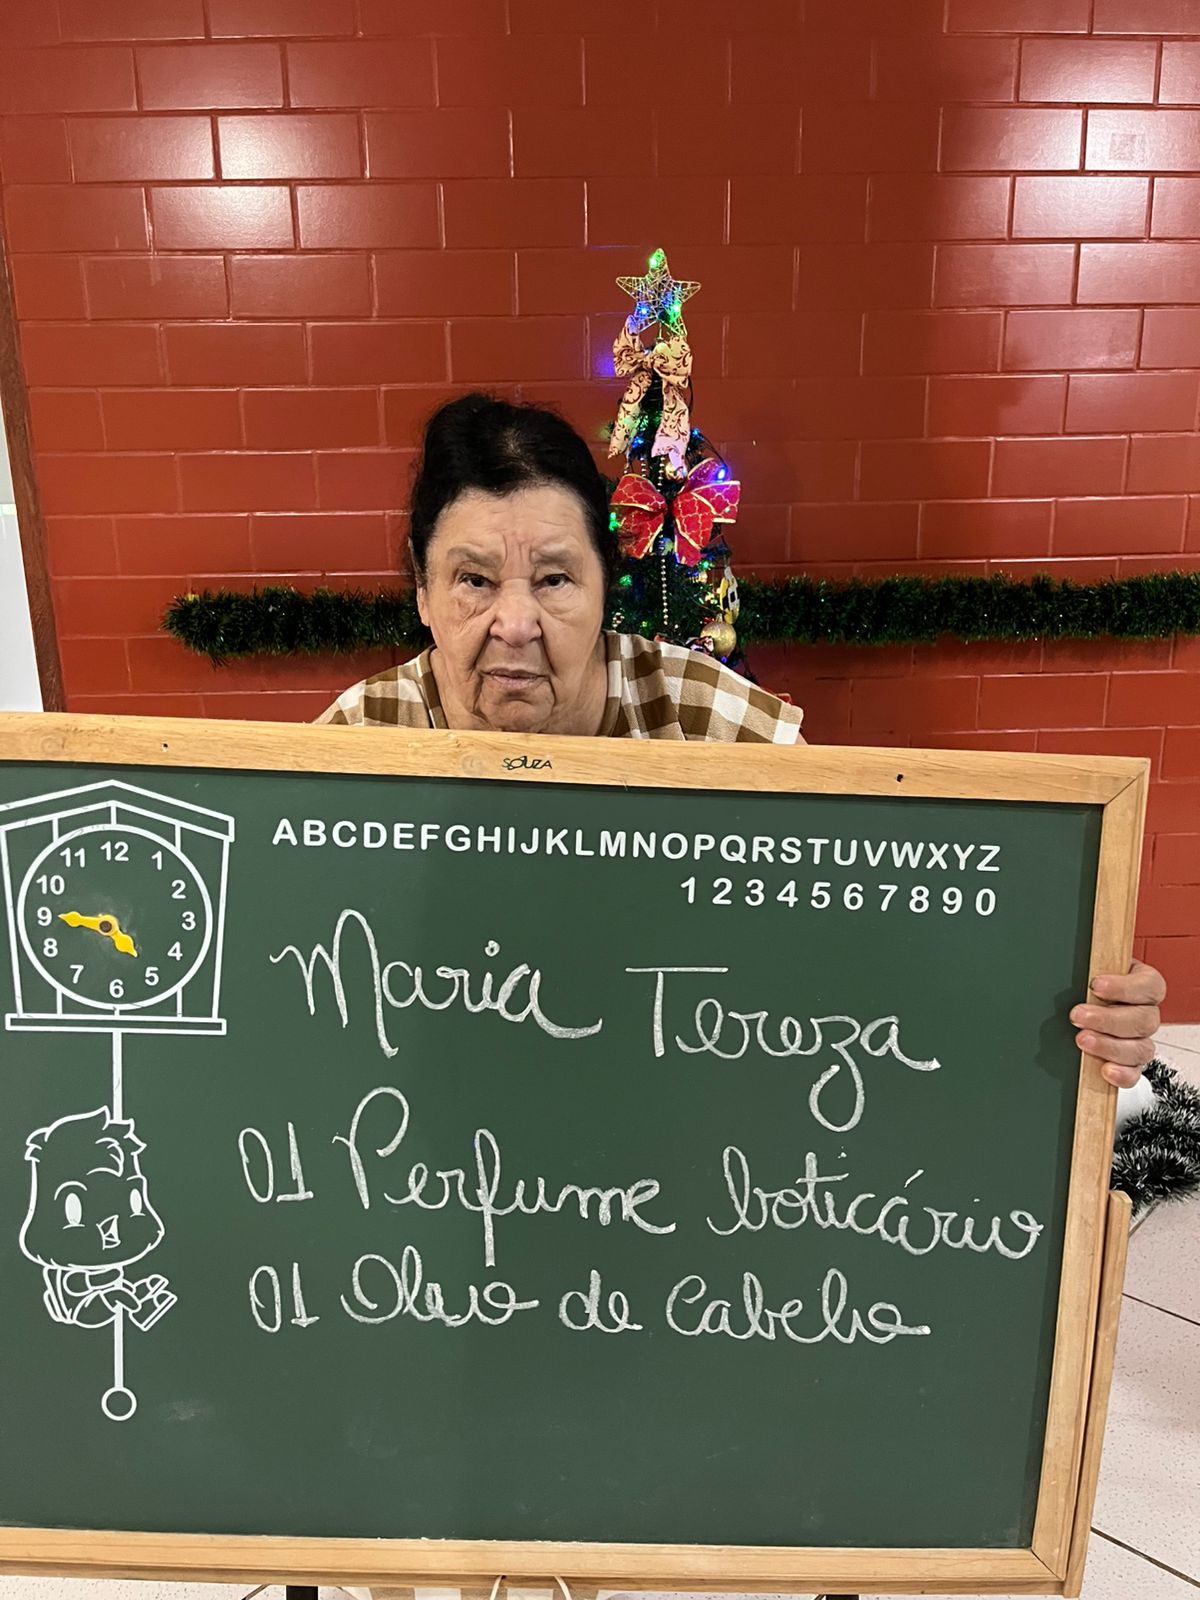 SOUZA
ABCDEFGHIJKLMNOPQRSTUVWXYZ
1234567890
12
11 1
10 2
9 3
8 4
7 5
6
Maria Tereza
01 Perfume boticário
01 Oleo de Cabelo